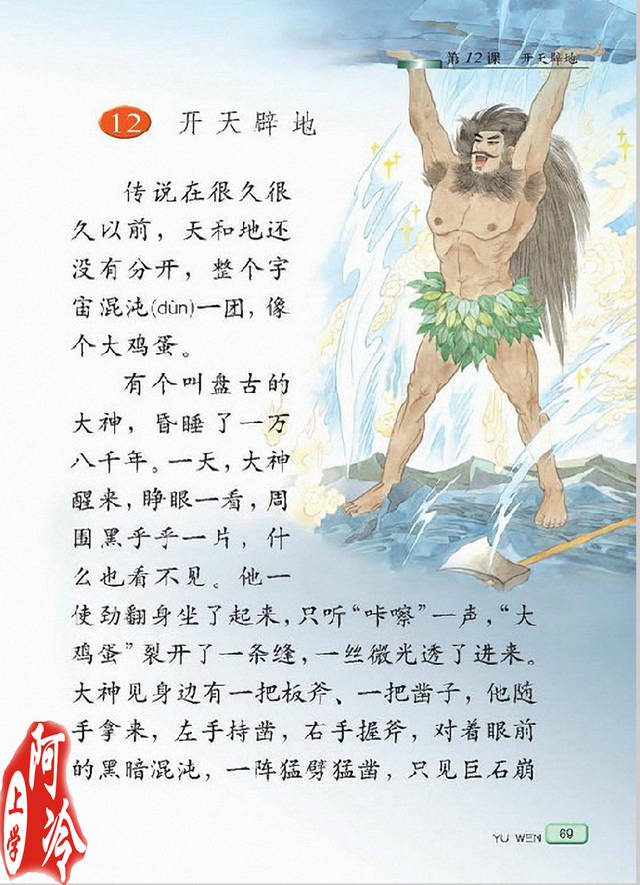 第12课 开天辟地
12 开天辟地
传说在很久很
久以前，天和地还
没有分开，整个宇
宙混沌(dùn)一团，像
个大鸡蛋。
有个叫盘古的
大神，昏睡了一万
八千年。一天，大神
醒来，睁眼一看，周
围黑乎乎一片，什
么也看不见。他一
使劲翻身坐了起来，只听“咔嚓”一声，“大
鸡蛋”裂开了一条缝，一丝微光透了进来。
大神见身边有一把板斧、一把凿子，他随
手拿来，左手持凿，右手握斧，对着眼前
的黑暗混沌，一阵猛劈猛凿，只见巨石崩
阿冷
上学
YU WEN 69